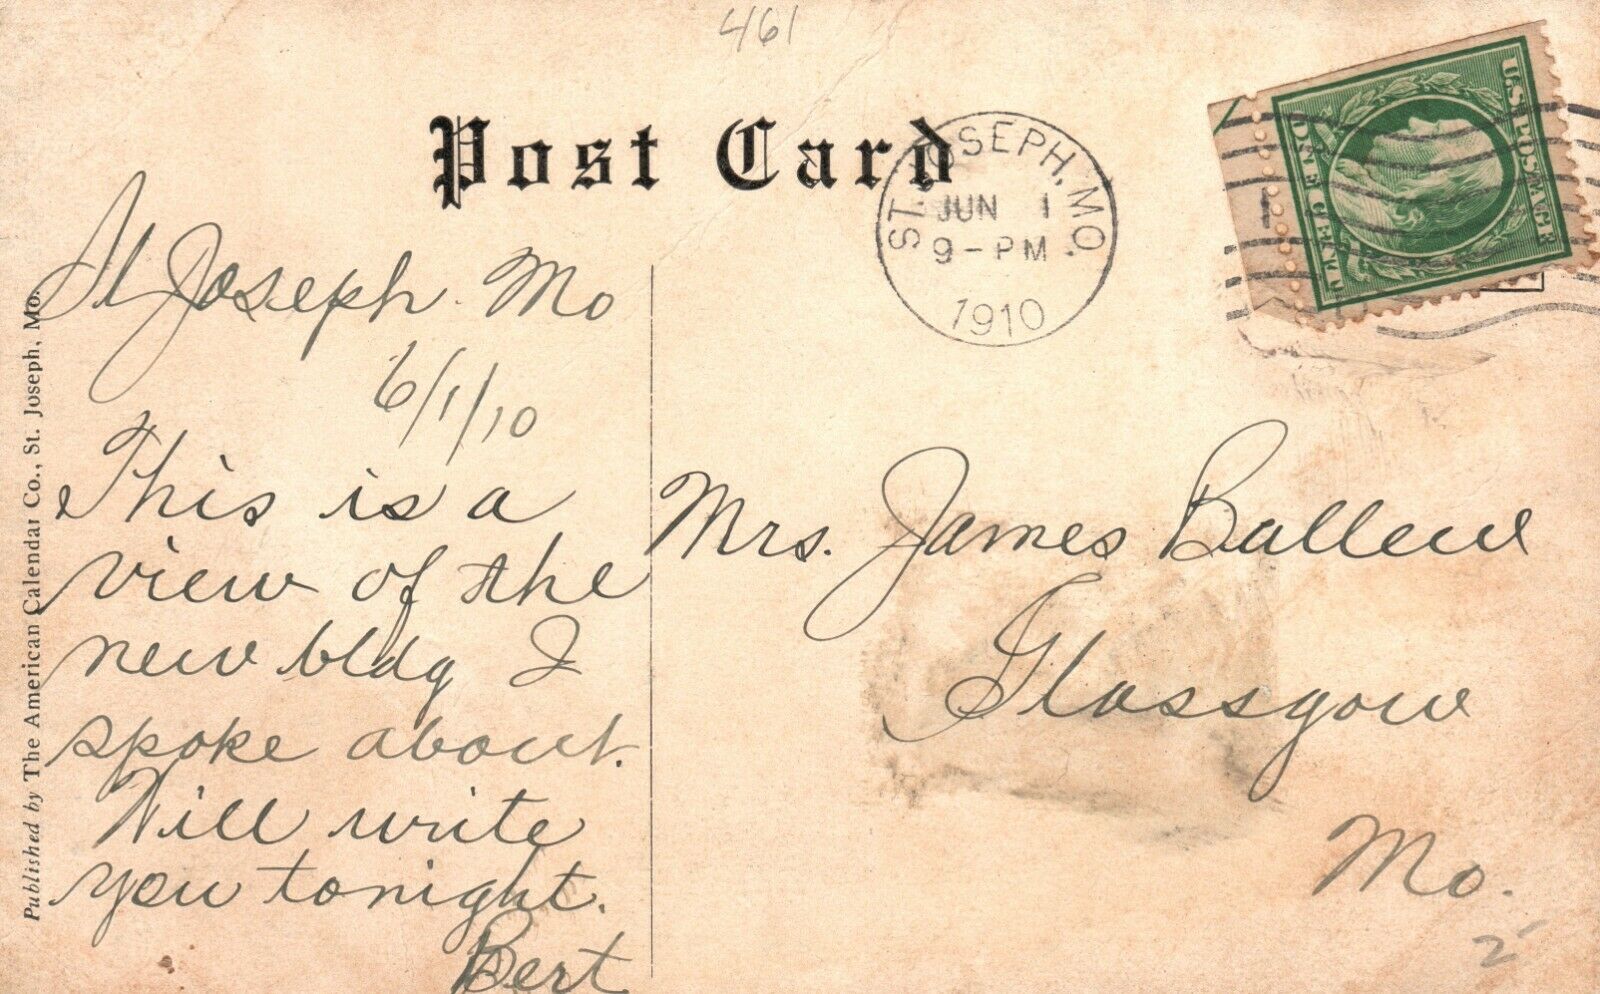 461
Post Card
ST. JOSEPH, MO.
JUN 1
9-PM
1910
U.S. POSTAGE
ONE CENT
St Joseph Mo
6/1/10
This is a
view of the
new bldg I
spoke about.
Will write
you tonight.
Bert
Mrs. James Ballew
Glassgow
Mo.
2
Published by The American Calendar Co., St. Joseph, Mo.